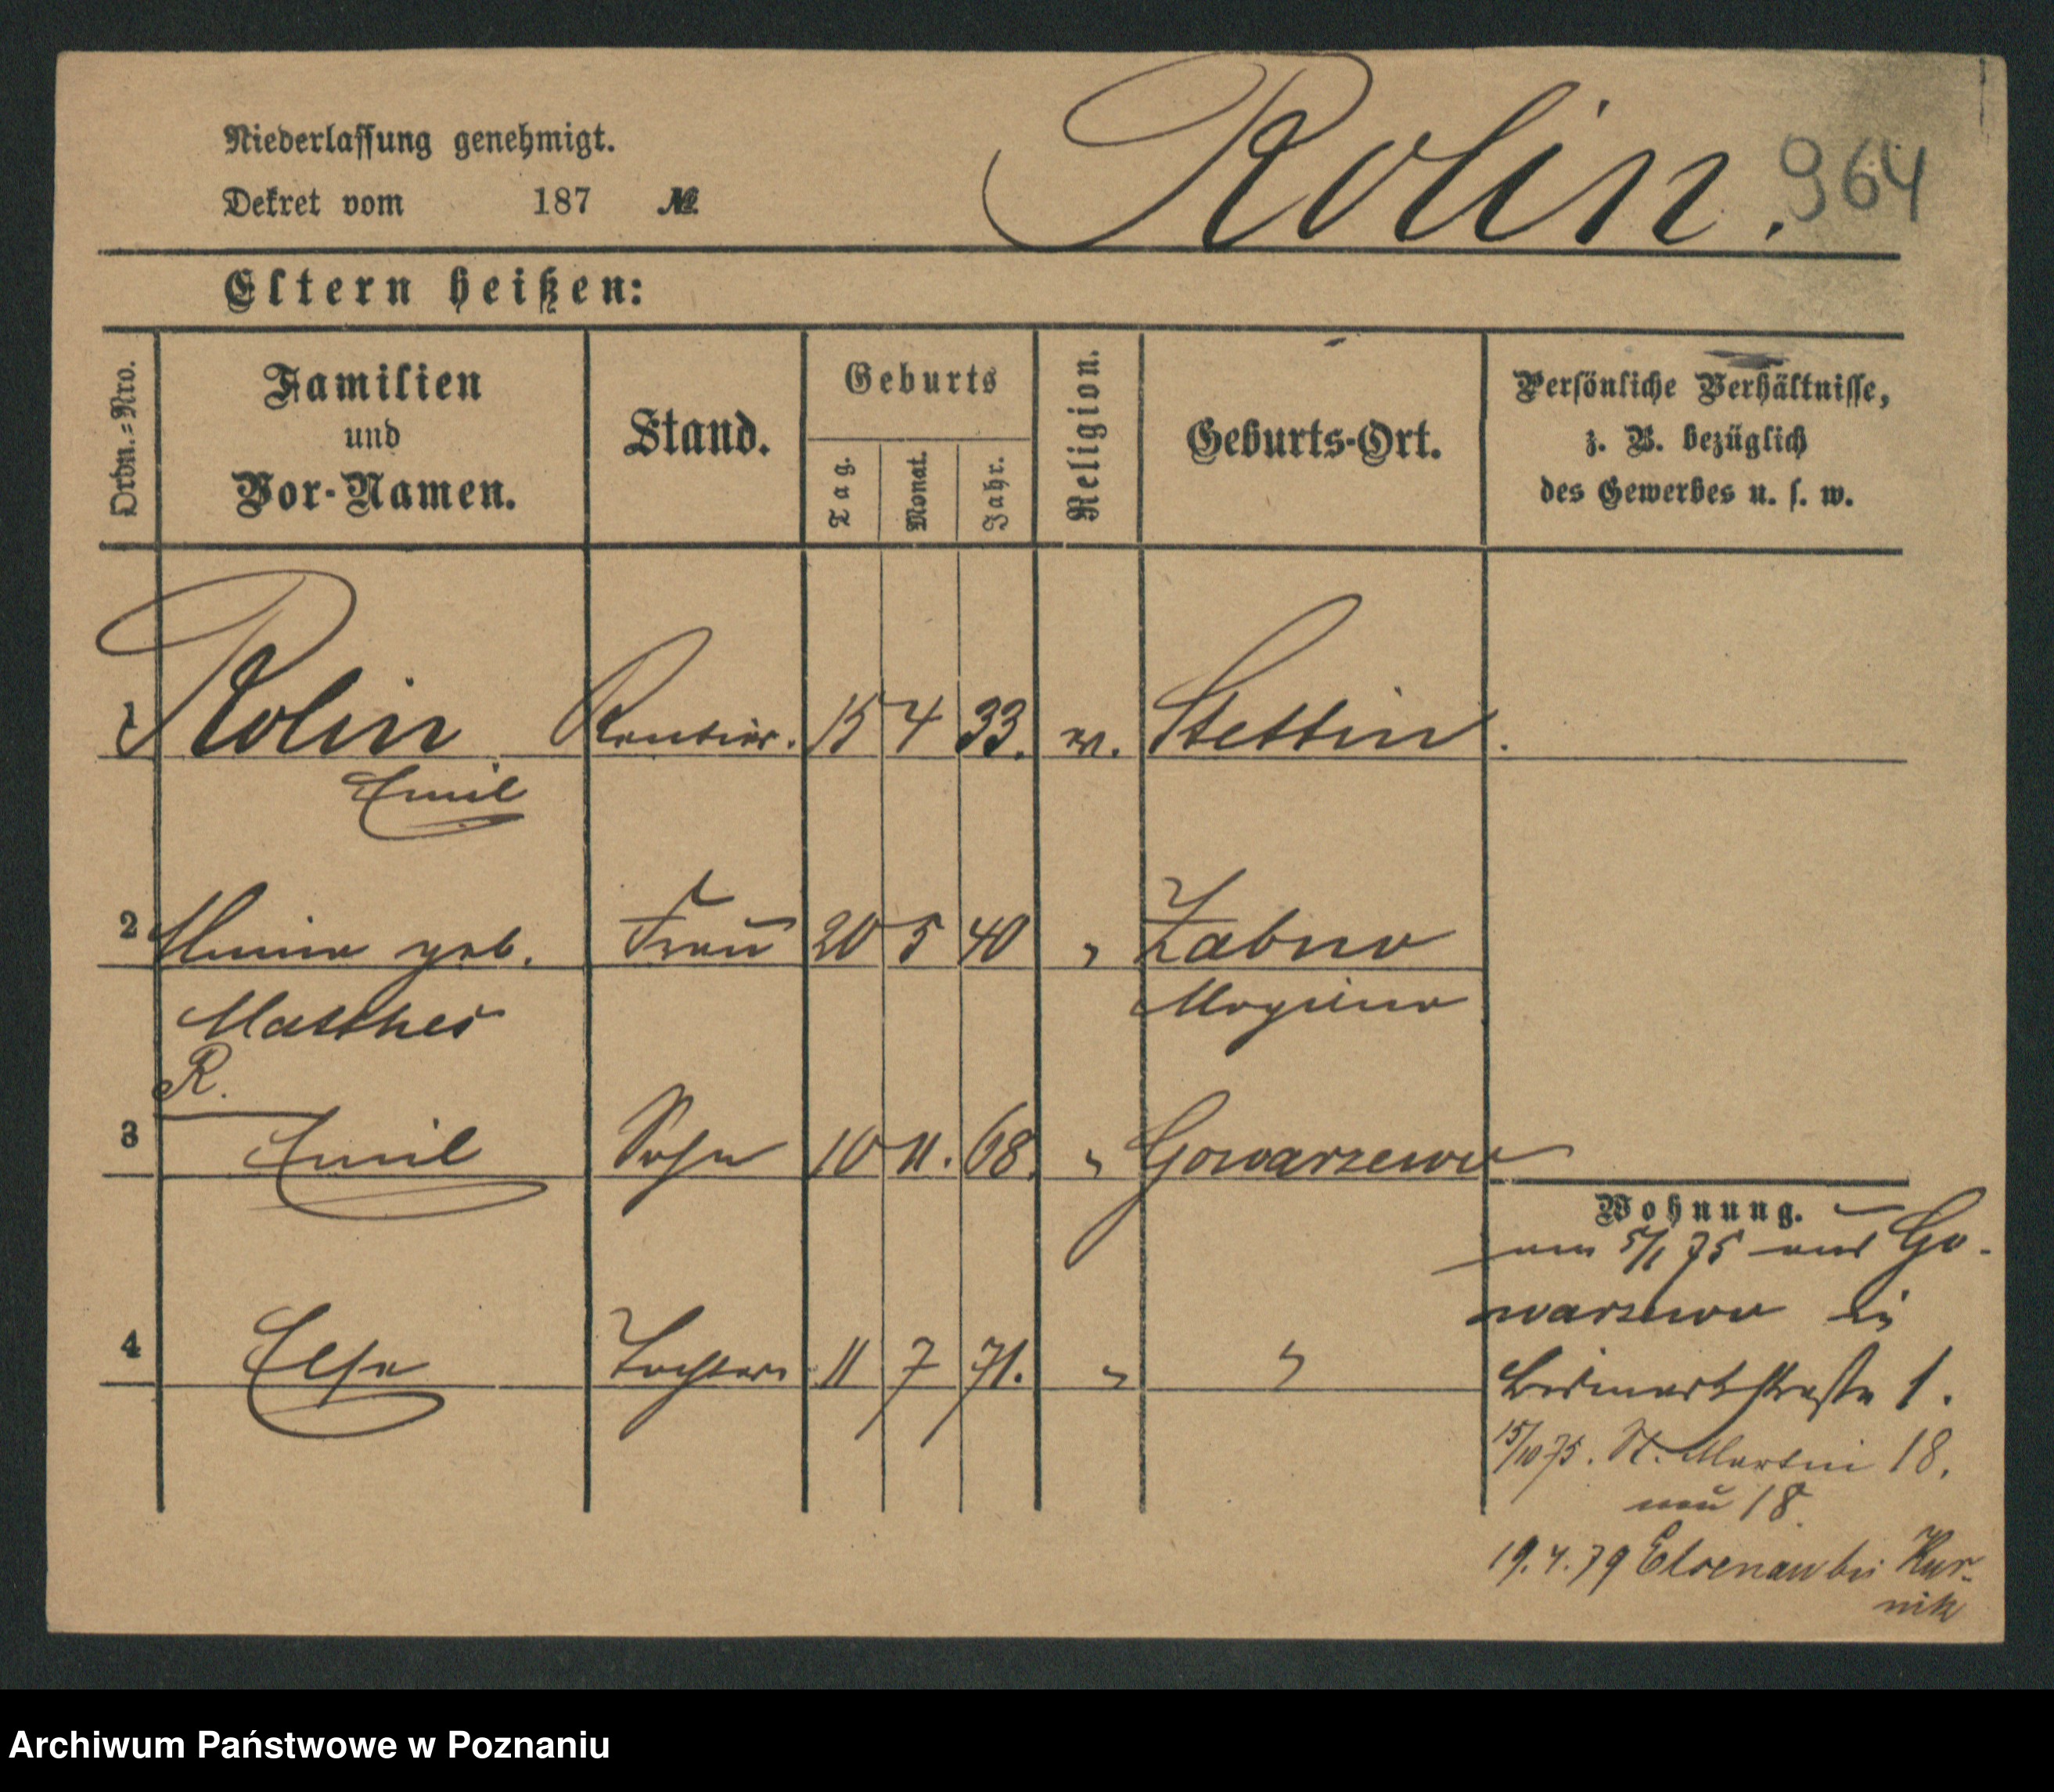 Niederlassung genehmigt.
Dekret vom 187 №
Rolin. 964
Eltern heißen:
Ordn.-Nro.
Familien und Vor-Namen.
Stand.
Geburts
Tag. Monat. Jahr.
Religion.
Geburts-Ort.
Persönliche Verhältnisse,
z. B. bezüglich
des Gewerbes u. s. w.
1 Rolin Rentier. 15 4 33. ev. Stettin.
Emil
2 geb. Frau 20 5 40 " Zabno
Matthes Mogilno
R.
3 Emil Sohn 10 11. 68. " Gowarzewo
Wohnung.
am 5/1 75 aus Go-
warzewo in
4 Elsa Tochter 11 7 71. " "
Bismarkstraße 1.
15/10 75. St. Martin 18.
neu 18.
19.4.79 Elsenau bei Kur-
nik
Archiwum Państwowe w Poznaniu